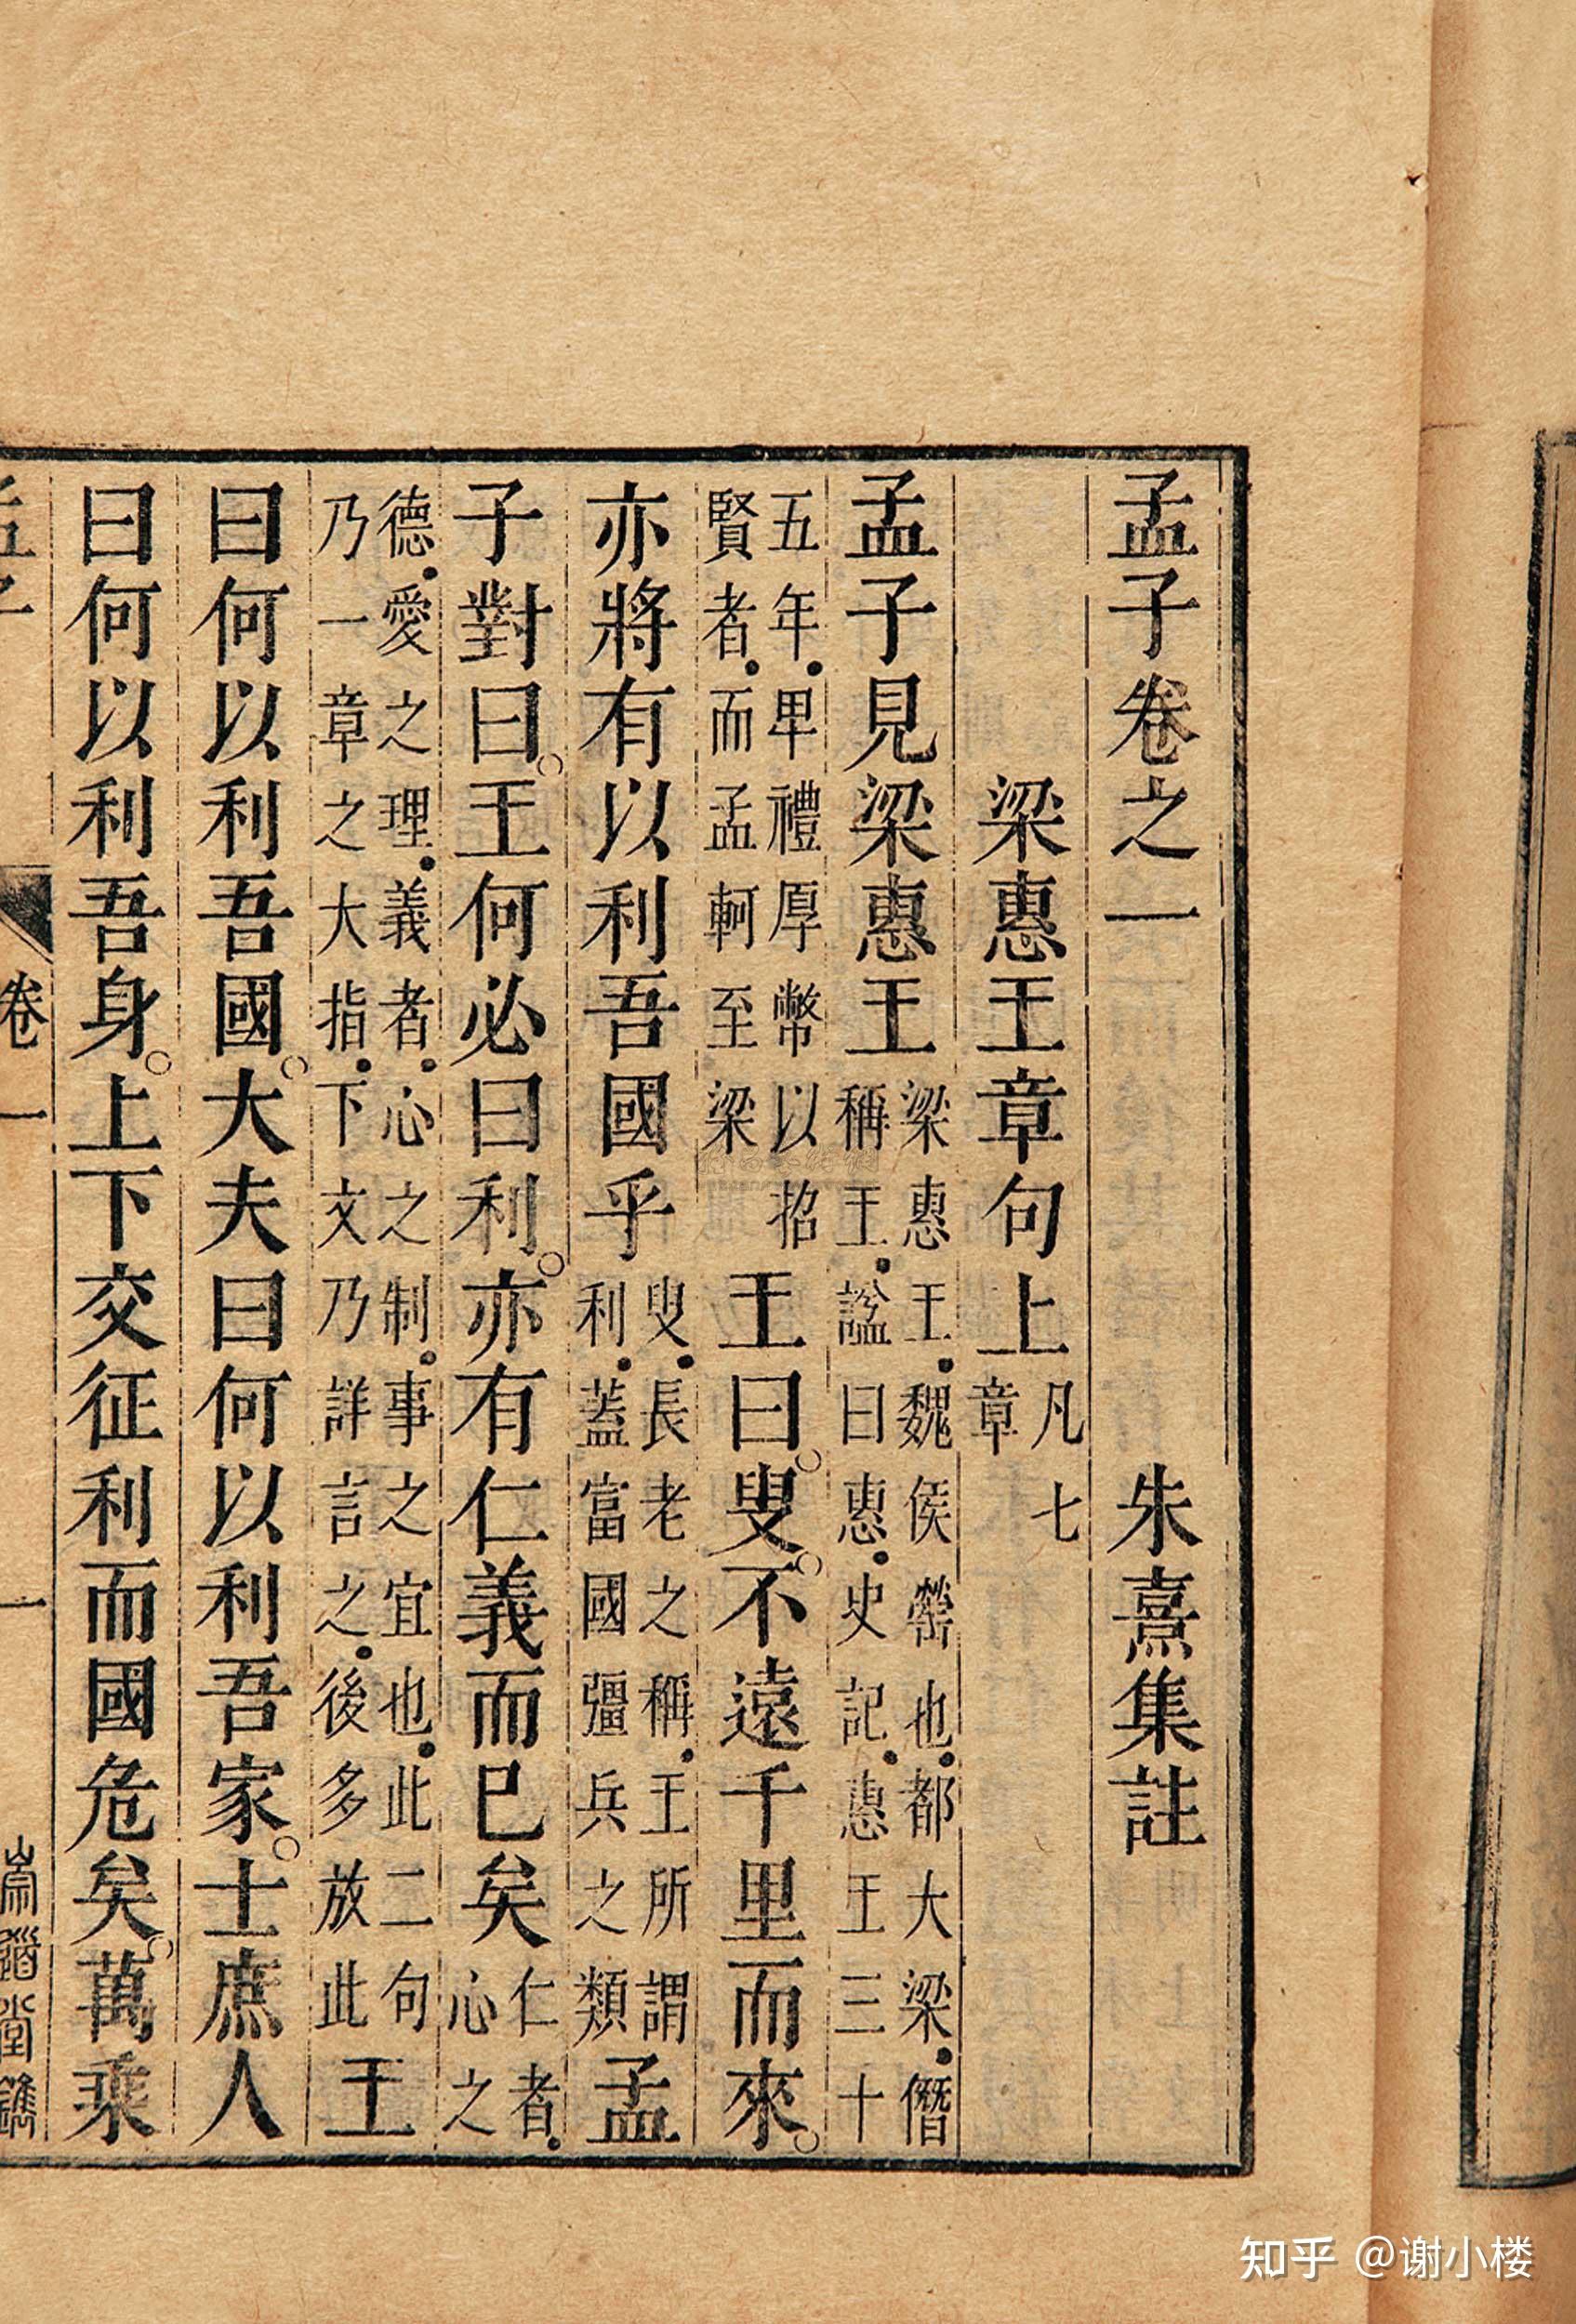 孟子卷之一 朱熹集註
梁惠王章句上 凡七章
孟子見梁惠王 梁惠王、魏侯罃也、都大梁、僭稱王、諡曰惠、史記、惠王三十
五年、卑禮厚幣以招賢者、而孟軻至梁 王曰。叟。不遠千里而來。
亦將有以利吾國乎 叟、長老之稱、王所謂利、蓋富國彊兵之類 孟
子對曰。王何必曰利。亦有仁義而已矣 仁者、心之
德、愛之理、義者、心之制、事之宜也、此二句乃一章之大指、下文乃詳言之、後多放此 王
曰何以利吾國。大夫曰何以利吾家。士庶人
曰何以利吾身。上下交征利而國危矣。萬乘
孟子 卷一 一 崇道堂鐫
知乎 @谢小楼